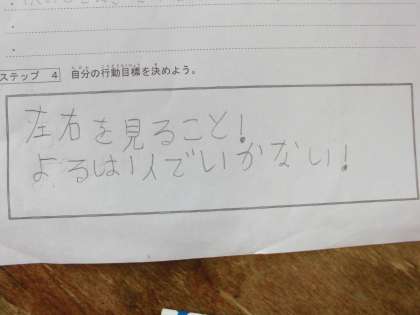 ステップ 4 自分の行動目標を決めよう。
左右を見ること!
よるは1人でいかない!